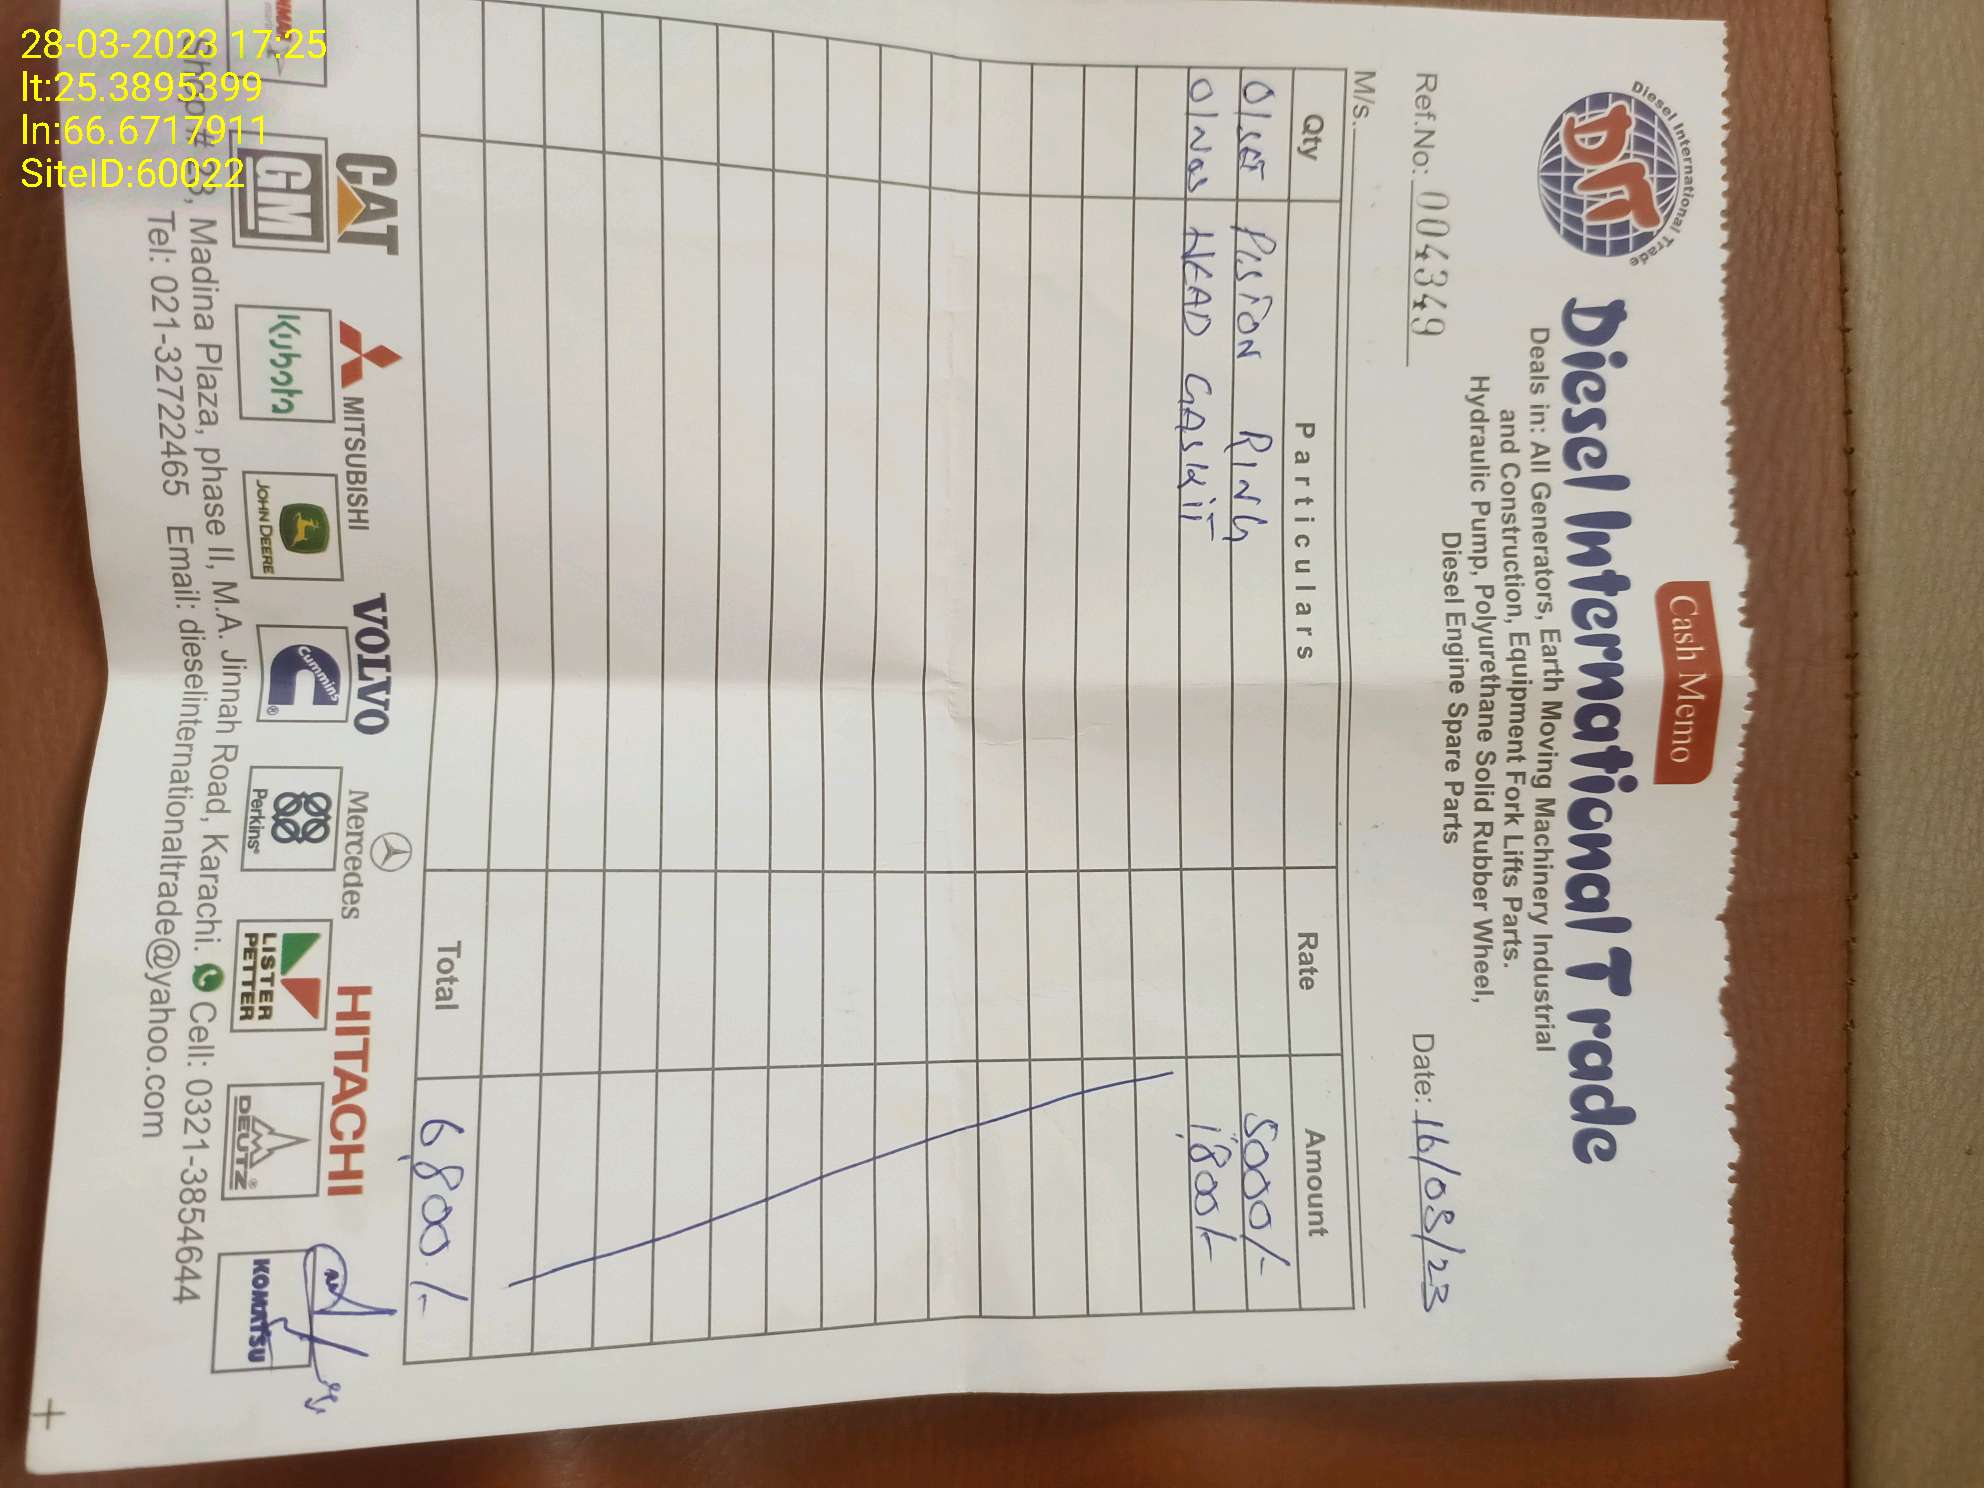 28-03-2023 17:25
lt:25.3895399
ln:66.6717911
SiteID:60022
Cash Memo
Diesel International Trade
DIT
Diesel International Trade
Deals in: All Generators, Earth Moving Machinery Industrial
and Construction, Equipment Fork Lifts Parts.
Hydraulic Pump, Polyurethane Solid Rubber Wheel,
Diesel Engine Spare Parts
Ref.No: 004349 Date: 16/08/23
M/s.
Qty Particulars Rate Amount
01 SET PISTON RING 5000/-
01 Nos HEAD GASKIT 1800/-
Total 6,800/-
CAT MITSUBISHI VOLVO Mercedes HITACHI
GM Kubota JOHN DEERE Cummins Perkins LISTER PETTER DEUTZ KOMATSU
Madina Plaza, phase II, M.A. Jinnah Road, Karachi. Cell: 0321-3854644
Tel: 021-32722465 Email: dieselinternationaltrade@yahoo.com